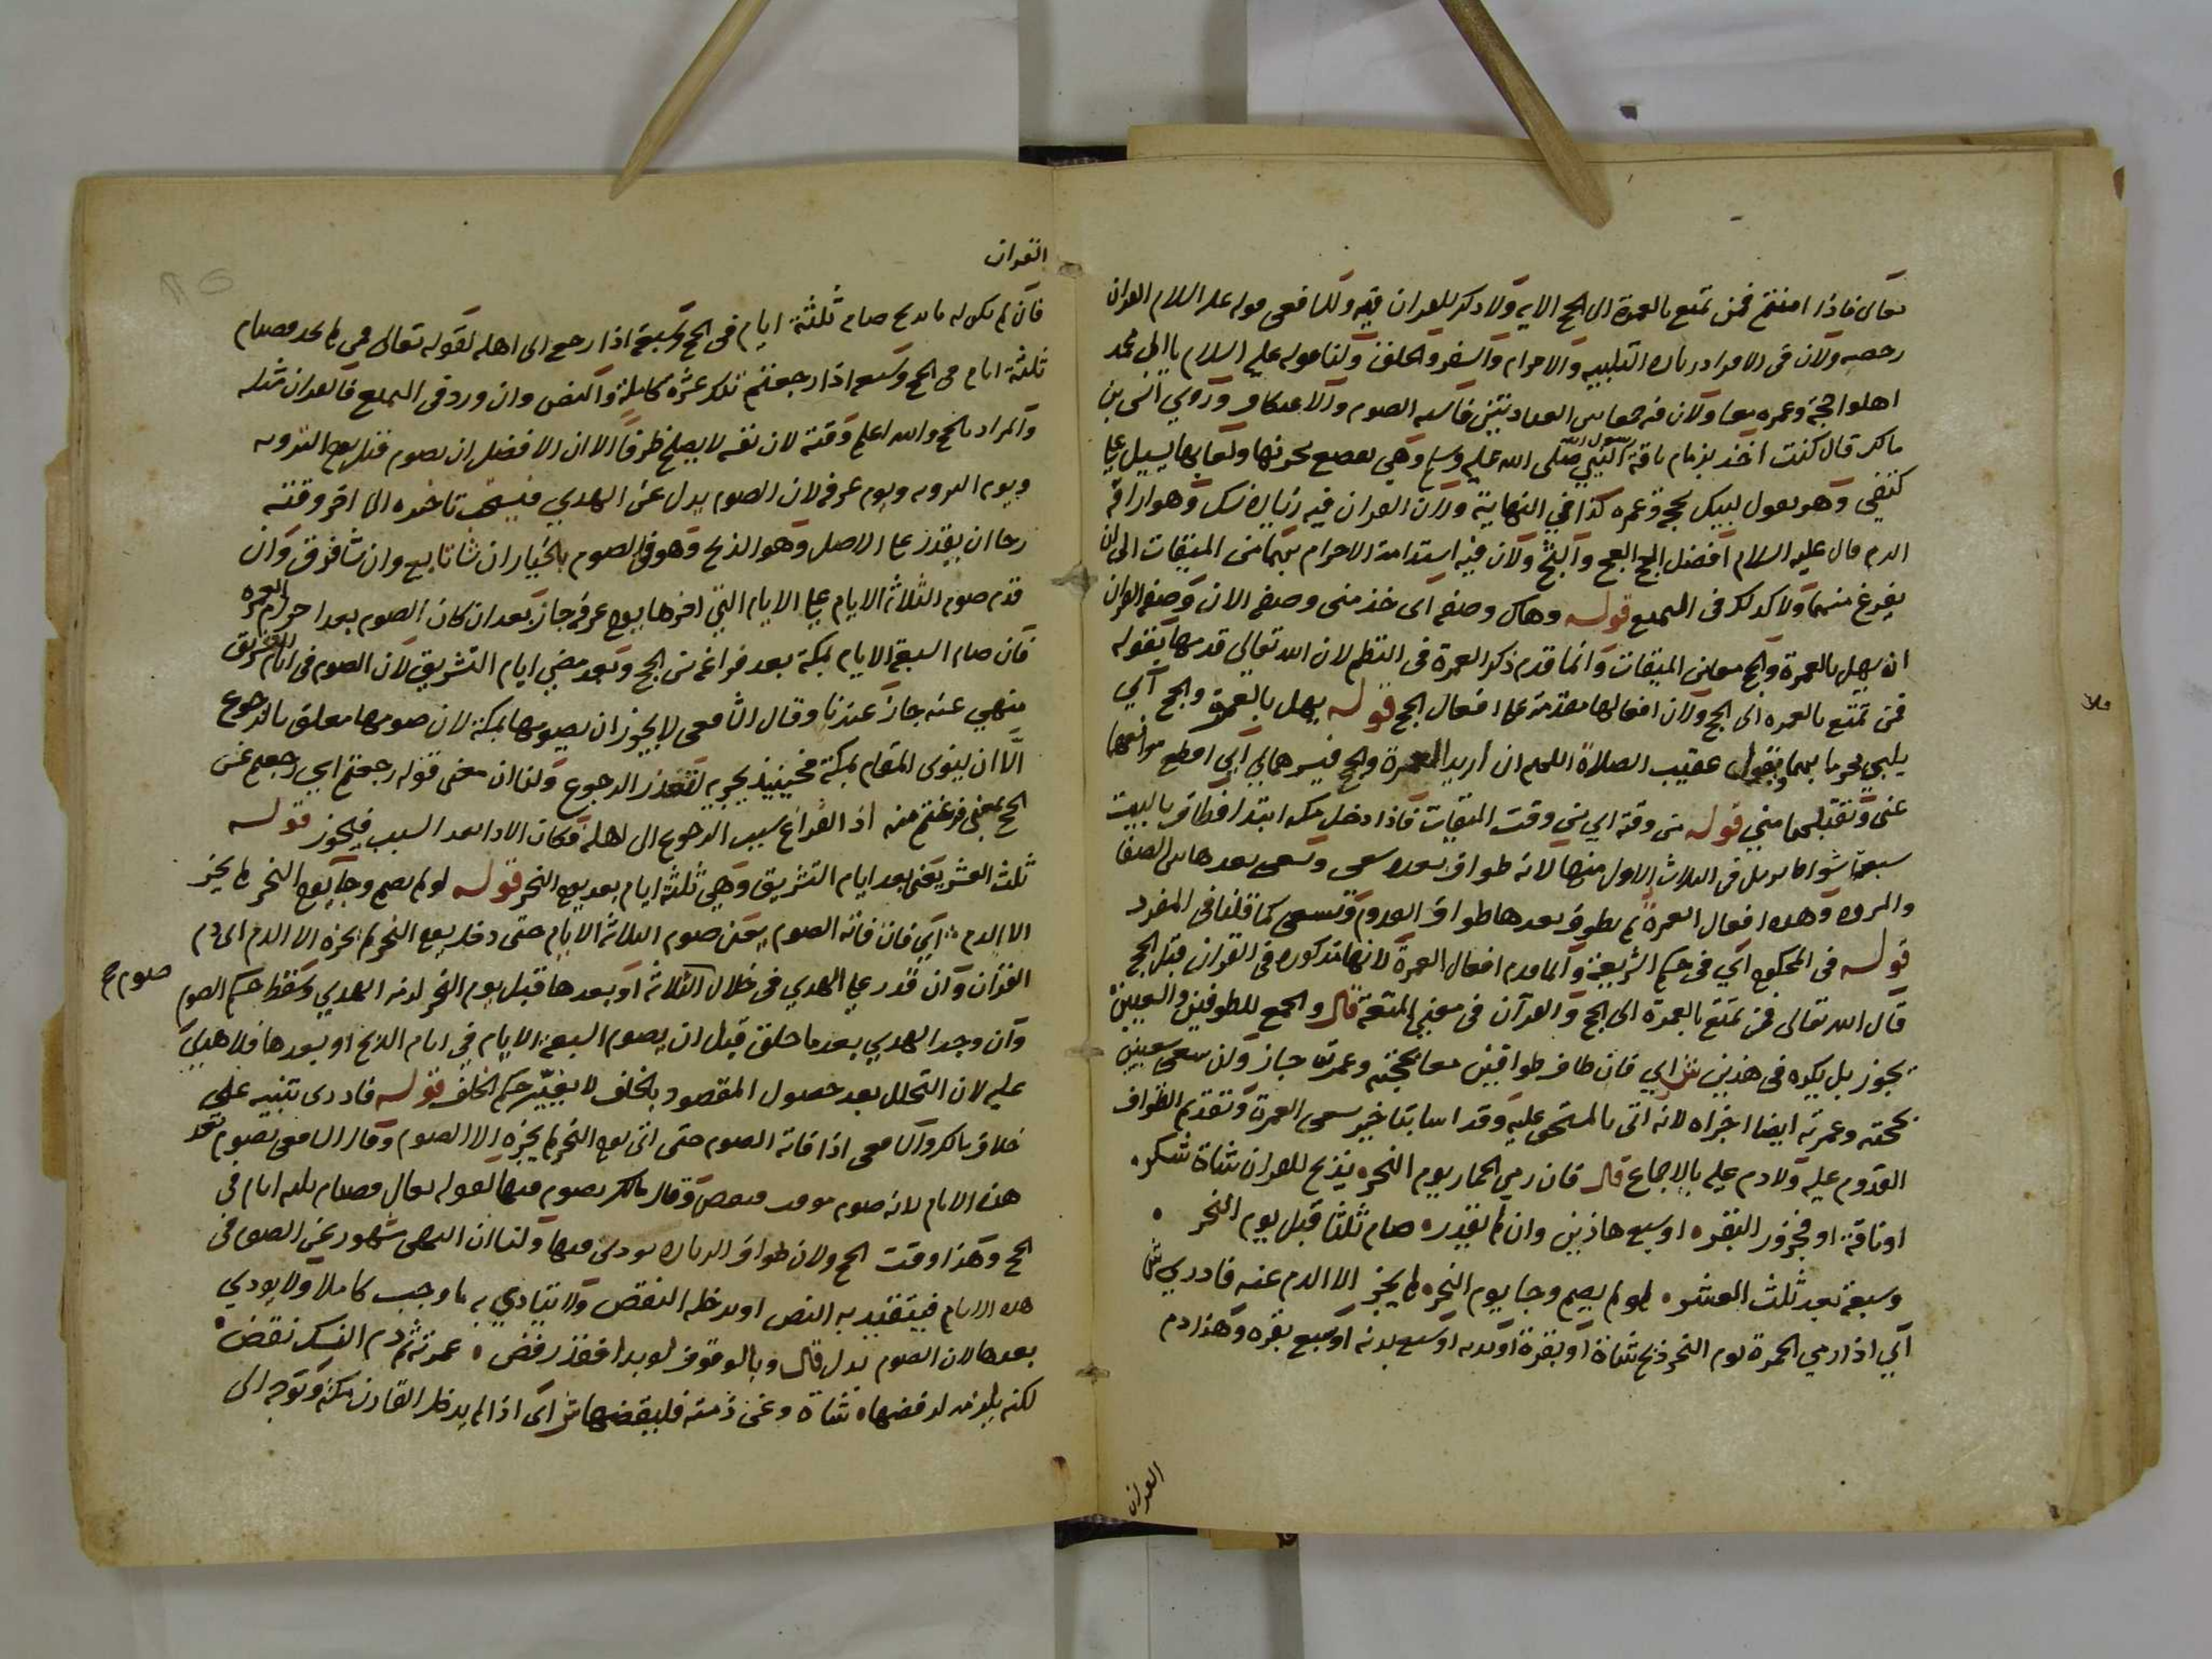 تعالى فاذا امنتم فمن تمتع بالعمرة الى الحج الاية ولا ذكر للقران فيه وللشافعى قوله عليه السلام القران
رخصه ولان فى الافراد زيادة التلبيه والاحرام والسفر والحلق ولنا قوله عليه السلام يا ال محمد
اهلوا بحجة وعمره معا ولان فيه جمعا بين العبادتين فاشبه الصوم والاعتكاف وروي انس بن
مالك قال كنت آخذ بزمام ناقة النبي صلى الله عليه وسلم وهي تقصع بجرتها ولعابها يسيل على
كتفي وهو يقول لبيك بحجة وعمره كذا في النهاية ولان القران فيه زيادة نسك وهو اراقة
الدم قال عليه السلام افضل الحج العج والثج ولان فيه استدامة الاحرام بهما من الميقات الى ان
يفرغ منهما ولا كذلك فى التمتع قوله وهاك وصفه اى خذ منى وصفه الان وصفة القران
ان يهل بالعمرة والحج معا من الميقات وانما قدم ذكر العمرة فى النظم لان الله تعالى قدمها بقوله
فمن تمتع بالعمره الى الحج ولان افعالها مقدمة على افعال الحج قوله يهل بالعمرة والحج آي
يلبي محرما بهما ويقول عقيب الصلاة اللهم انى اريد العمرة والحج فيسرهما لي آي اقطع موانعهما
عنى وتقبلهما مني قوله من وقته اي من وقت الميقات فاذا دخل مكه ابتدا فطاف بالبيت
سبعة اشواط يرمل فى الثلاث الاول منها لانه طواف بعده سعى ويسعى بعدها بين الصفا
والمروه وهذه افعال العمرة ثم يطوف بعدها طواف القدوم ويسعى كما قلنا فى المفرد
قوله فى المحكوم آي فى حكم الشريعة وانما قدم افعال العمرة لانها مذكوره فى القران قبل الحج
قال الله تعالى فمن تمتع بالعمرة الى الحج والقرآن فى معنى المتعة قال والجمع للطوفين والسعيين
يجوز بل يكره فى هذين ش اي فان طاف طوافين معا لحجته وعمرته جاز ولن سعى سعيين
لحجته وعمرته ايضا اجزاه لانه اتى بالمستحق عليه وقد اسا بتاخير سعى العمرة وتقديم الطواف
القدوم عليه ولا دم عليه بالاجماع قال فان رمى الجمار يوم النحر يذبح للقران شاة شكره
او ناقة او فجزور البقره او سبع هاذين وان لم يقدره صام ثلثا قبل يوم النحر
وسبعة بعد ثلث العشره لو لم يصم وجا يوم النحره لم يجز الا الدم عنه فادري ش
آي اذا رمي الجمرة يوم النحر ذبح شاة او بقرة او بدنه او سبع بدنه او سبع بقره وهذا دم
القران
القران
فان لم يكن له ما يذبح صام ثلثة ايام فى الحج وسبعة اذا رجع الى اهله لقوله تعالى فمن لم يجد فصيام
ثلثة ايام فى الحج وسبعه اذا رجعتم تلك عشرة كاملة والنص وان ورد فى التمتع فالقران مثله
والمراد بالحج والله اعلم وقته لان نفسه لا يصلح ظرفا الا ان الافضل ان يصوم قبل يوم الترويه
ويوم الترويه ويوم عرفه لان الصوم بدل عن الهدي فيستحب تاخيره الى اخر وقته
رجا ان يقدر على الاصل وهو الذبح وهو فى الصوم بالخيار ان شا تابع وان شا فرق وان
قدم صوم الثلاثة الايام على الايام التي اخرها يوم عرفه جاز بعد ان كان الصوم بعد احرام العمره
فان صام السبعة الايام بمكة بعد فراغه من الحج وبعد مضي ايام التشريق لان الصوم فى ايام التشريق
منهي عنه جاز عندنا وقال الشافعى لا يجوز ان يصومها بمكة لان صومها معلق بالرجوع
الا ان ينوى المقام بمكة فحينيذ يجزيه لتعذر الرجوع ولنا ان معنى قوله رجعتم اي رجعتم عن
الحج بمعنى فرغتم منه اذ الفراغ سبب الرجوع الى اهله فكان الادا بعد السبب فيجوز قوله
ثلث العشر يعنى بعد ايام التشريق وهي ثلثة ايام بعد يوم النحر قوله لو لم يصم وجا يوم النحر لم يجز
الا الدم آي فان فاته الصوم يعنى صوم الثلاثة الايام حتى دخل يوم النحر لم يجزه الا الدم اى دم
القران وان قدر على الهدي فى خلال الثلاثة او بعدها قبل يوم النحر لزمه الهدي وسقط حكم الصوم
صوم ع
وان وجد الهدي بعد ما حلق قبل ان يصوم السبعة الايام في ايام الذبح او بعدها فلا هدي
عليه لان التحلل بعد حصول المقصود بالخلف لا يغير حكم الخلف قوله فادرى تنبيه على
خلاف مالك والشافعى اذا فاته الصوم حتى اتى يوم النحر لم يجزه الا الصوم وقال الشافعى يصوم بعد
هذه الايام لانه صوم موقت فيقضى وقال مالك يصوم فيها لقوله تعالى فصيام ثلثه ايام فى
الحج وهذا وقت الحج ولان طواف الزياره يودى فيها ولنا ان النهى مشهور عن الصوم فى
هذه الايام فيتقيد به النص او يدخله النقص ولا يتادي به ما وجب كاملا ولا يودي
بعدها لان الصوم بدل قال وبالوقوف لو بدا فقد رفض عمرته ثم دم النسك نقض
لكنه يلزمه لرفضها شاة وعن ذمته فليقضها ش آى اذا لم يدخل القارن مكة وتوجه الى